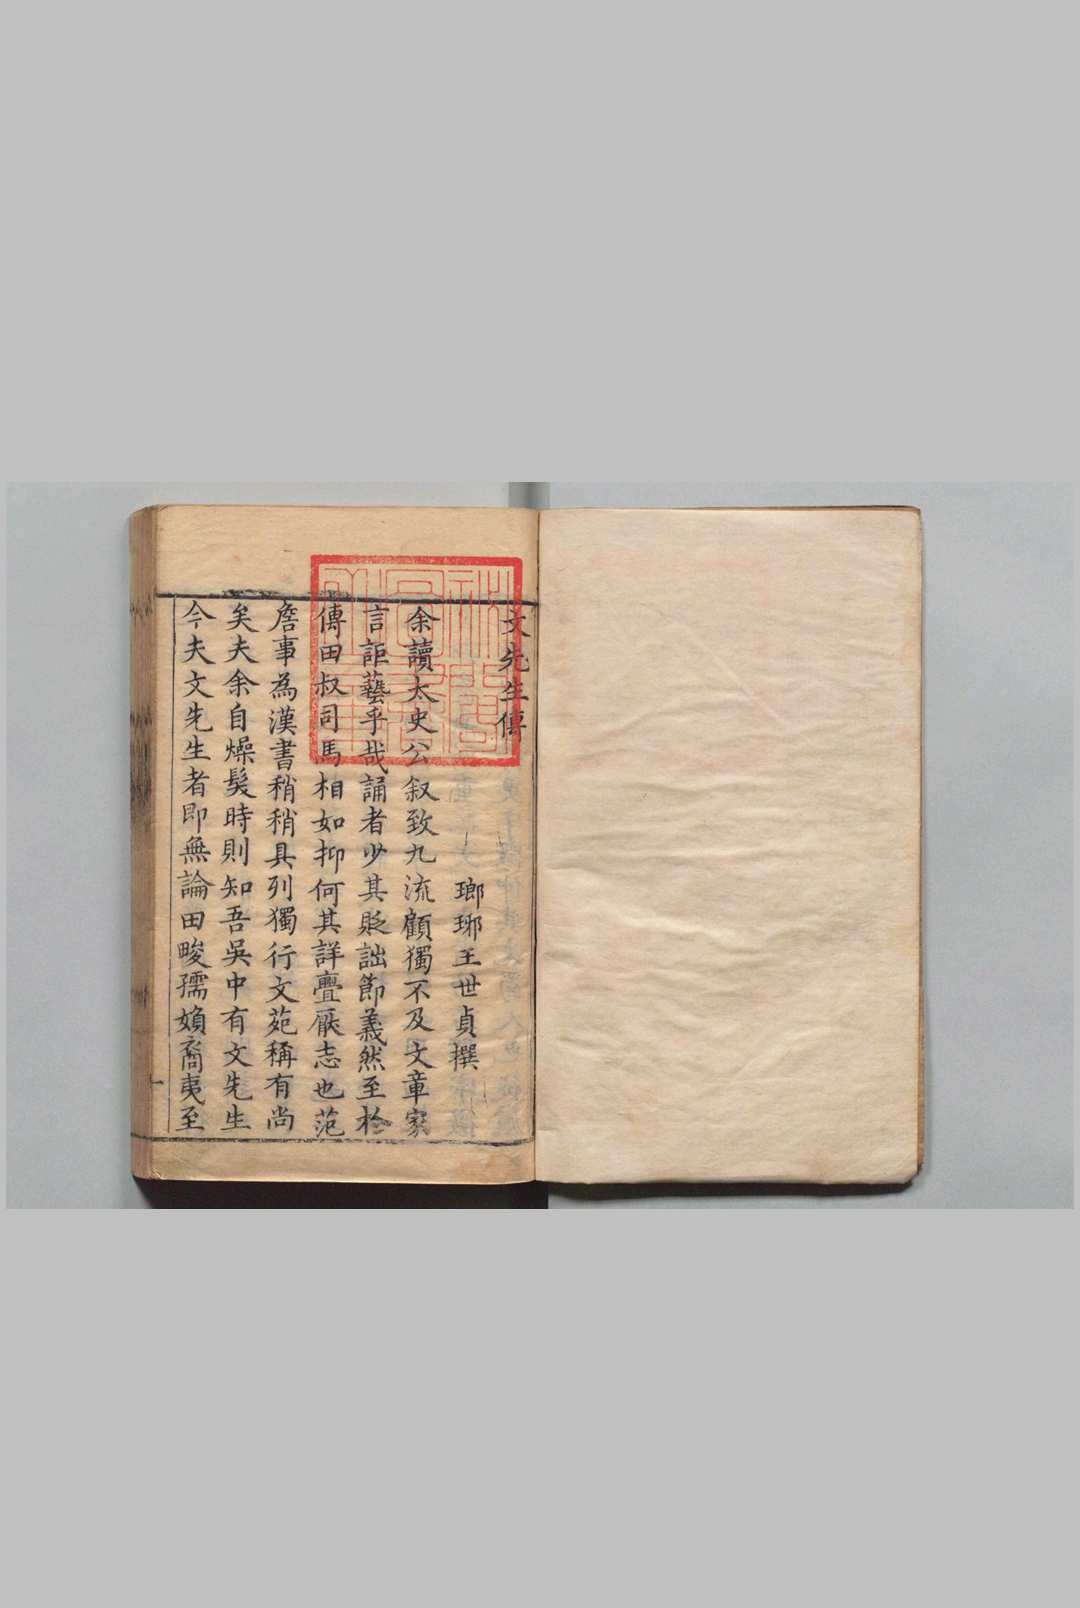 文先生傳
瑯琊王世貞撰
余讀太史公叙致九流顧獨不及文章家
言詎藝乎哉誦者少其貶詘節義然至於
傳田叔司馬相如抑何其詳亹厭志也范
詹事為漢書稍稍具列獨行文苑稱有尚
矣夫余自燥髮時則知吾吳中有文先生
今夫文先生者即無論田畯孺嬪裔夷至